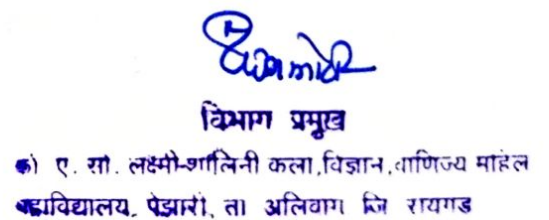 विभाग प्रमुख
को ए. सो. लक्ष्मी-शालिनी कला,विज्ञान,वाणिज्य महिला
महाविद्यालय, पेझारी, ता अलिबाग जि रायगड